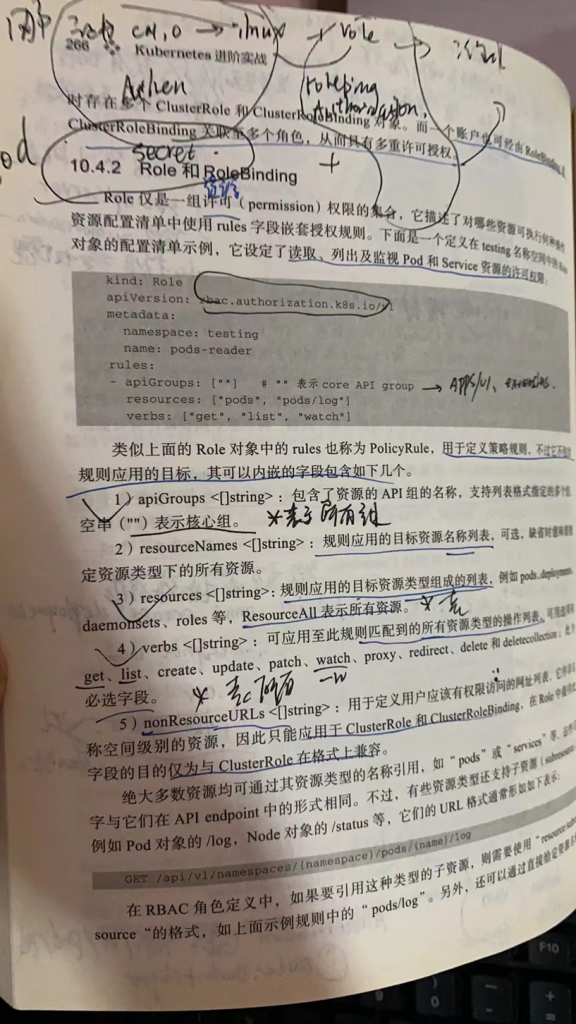 CN,O → linux + role →
266 Kubernetes 进阶实战
Authen
roleping
Authorization.
时存在多个 ClusterRole 和 ClusterRoleBinding 对象。而一个账户也可经由 RoleBinding
ClusterRoleBinding 关联至多个角色，从而具有多重许可授权。
secret
+
10.4.2 Role 和 RoleBinding
Role 仅是一组许可（permission）权限的集合，它描述了对哪些资源可执行何种操作
资源配置清单中使用 rules 字段嵌套授权规则。下面是一个定义在 testing 名称空间中的 Role
对象的配置清单示例，它设定了读取、列出及监视 Pod 和 Service 资源的许可权限：
kind: Role
apiVersion: rbac.authorization.k8s.io/v1
metadata:
namespace: testing
name: pods-reader
rules:
- apiGroups: [""] # "" 表示 core API group → APPS/V1、
resources: ["pods", "pods/log"]
verbs: ["get", "list", "watch"]
类似上面的 Role 对象中的 rules 也称为 PolicyRule，用于定义策略规则，不过它不
规则应用的目标，其可以内嵌的字段包含如下几个。
1）apiGroups <[]string>：包含了资源的 API 组的名称，支持列表格式指定的多个组
空串（""）表示核心组。 *表示所有组
2）resourceNames <[]string>：规则应用的目标资源名称列表，可选，缺省时意味着
定资源类型下的所有资源。
3）resources <[]string>：规则应用的目标资源类型组成的列表，例如 pods、deployments
daemonsets、roles 等，ResourceAll 表示所有资源。 *
4）verbs <[]string>：可应用至此规则匹配到的所有资源类型的操作列表，可用选项有
get、list、create、update、patch、watch、proxy、redirect、delete 和 deletecollection；此为
必选字段。 * 所有 -w
5）nonResourceURLs <[]string>：用于定义用户应该有权限访问的网址列表，它并非
称空间级别的资源，因此只能应用于 ClusterRole 和 ClusterRoleBinding，在 Role 中
字段的目的仅为与 ClusterRole 在格式上兼容。
绝大多数资源均可通过其资源类型的名称引用，如 "pods" 或 "services" 等，这些
字与它们在 API endpoint 中的形式相同。不过，有些资源类型还支持子资源（subresource
例如 Pod 对象的 /log，Node 对象的 /status 等，它们的 URL 格式通常形如如下表示：
GET /api/v1/namespaces/{namespace}/pods/{name}/log
在 RBAC 角色定义中，如果要引用这种类型的子资源，则需要使用 "resource/sub
source "的格式，如上面示例规则中的 "pods/log"。另外，还可以通过直接给定资源
F10